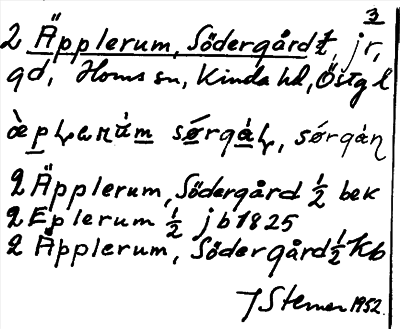 3
2 Äpplerum, Södergård ½, jr,
gd, Horns sn, Kinda hd, Östg l
2 Äpplerum, Södergård ½ bek
2 Eplerum ½ jb 1825
2 Äpplerum, Södergård ½ Kb
J Stemer 1952